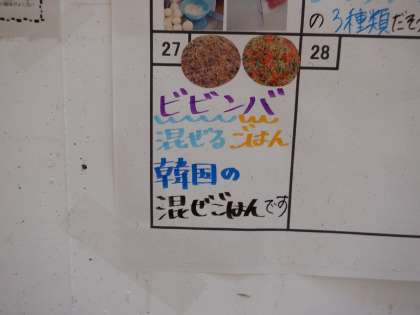 の3種類だそ
27
28
ビビンバ
混ぜる ごはん
韓国の
混ぜごはんです